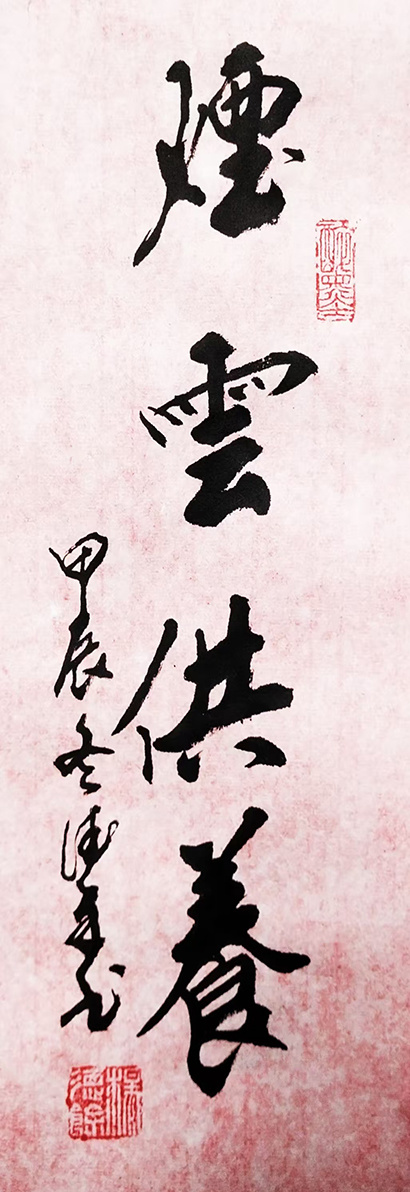 煙雲供養
甲辰冬德